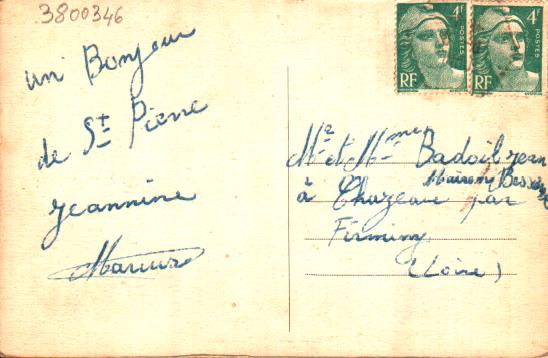 3800346
un Bonjour
de St Pierre
Jeannine
Marius
4F
POSTES
RF
4F
POSTES
RF
Mr et Mme Badoil Jean
Maison Besson
à Chazeau par
Firminy
(Loire)